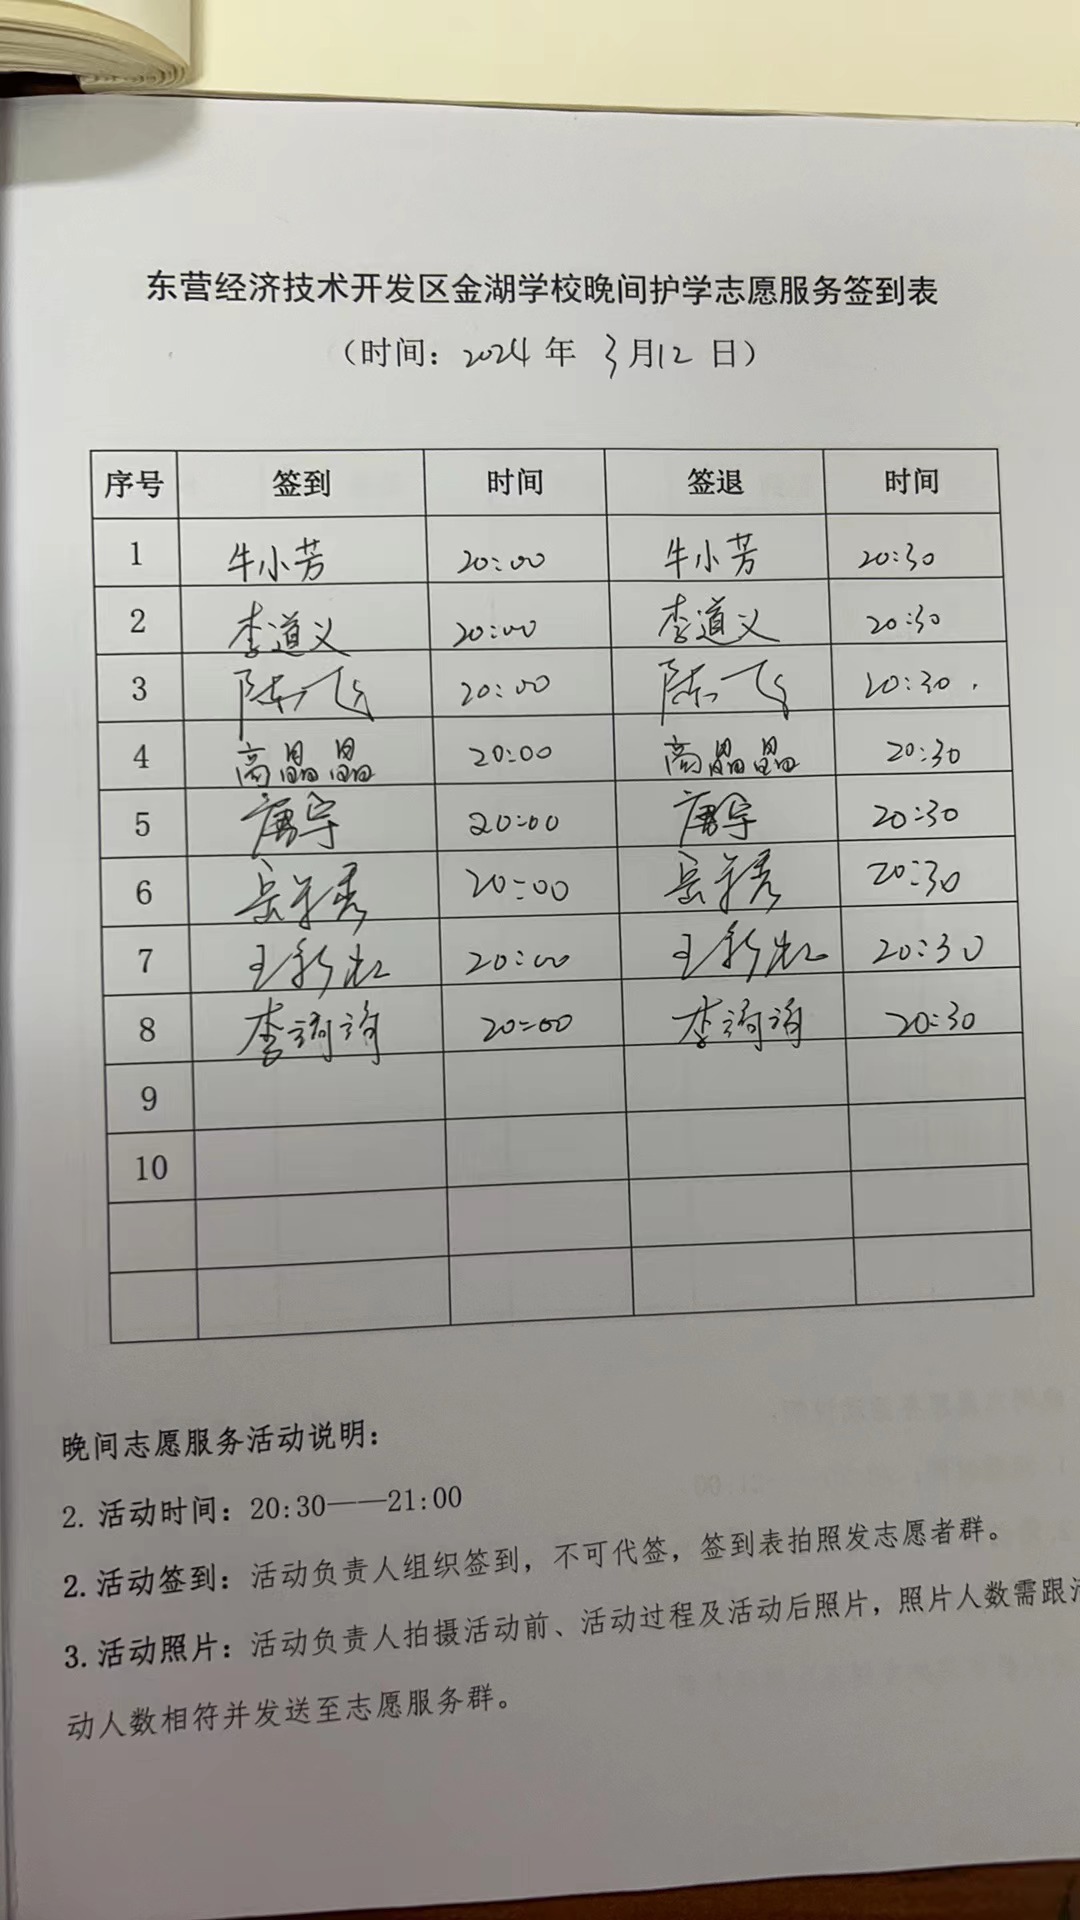 东营经济技术开发区金湖学校晚间护学志愿服务签到表
（时间：2024 年 3月12 日）
序号 签到 时间 签退 时间
1 牛小芳 20:00 牛小芳 20:30
2 李道义 20:00 李道义 20:30
3 陈飞 20:00 陈飞 20:30
4 高晶晶 20:00 高晶晶 20:30
5 20:00 20:30
6 20:00 20:30
7 20:00 20:30
8 李询询 20:00 李询询 20:30
9
10
晚间志愿服务活动说明：
2. 活动时间：20:30——21:00
2. 活动签到：活动负责人组织签到，不可代签，签到表拍照发志愿者群。
3. 活动照片：活动负责人拍摄活动前、活动过程及活动后照片，照片人数需跟
动人数相符并发送至志愿服务群。